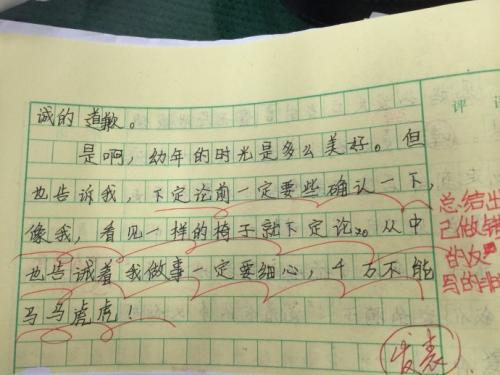 诚的道歉。
是啊，幼年的时光是多么美好。但
也告诉我，下定论前一定要些确认一下，
像我，看见一样的椅子就下定论。从中
也告诫着我做事一定要细心，千万不能
马马虎虎！
评
总结出
己做错
的反
写的非
发表